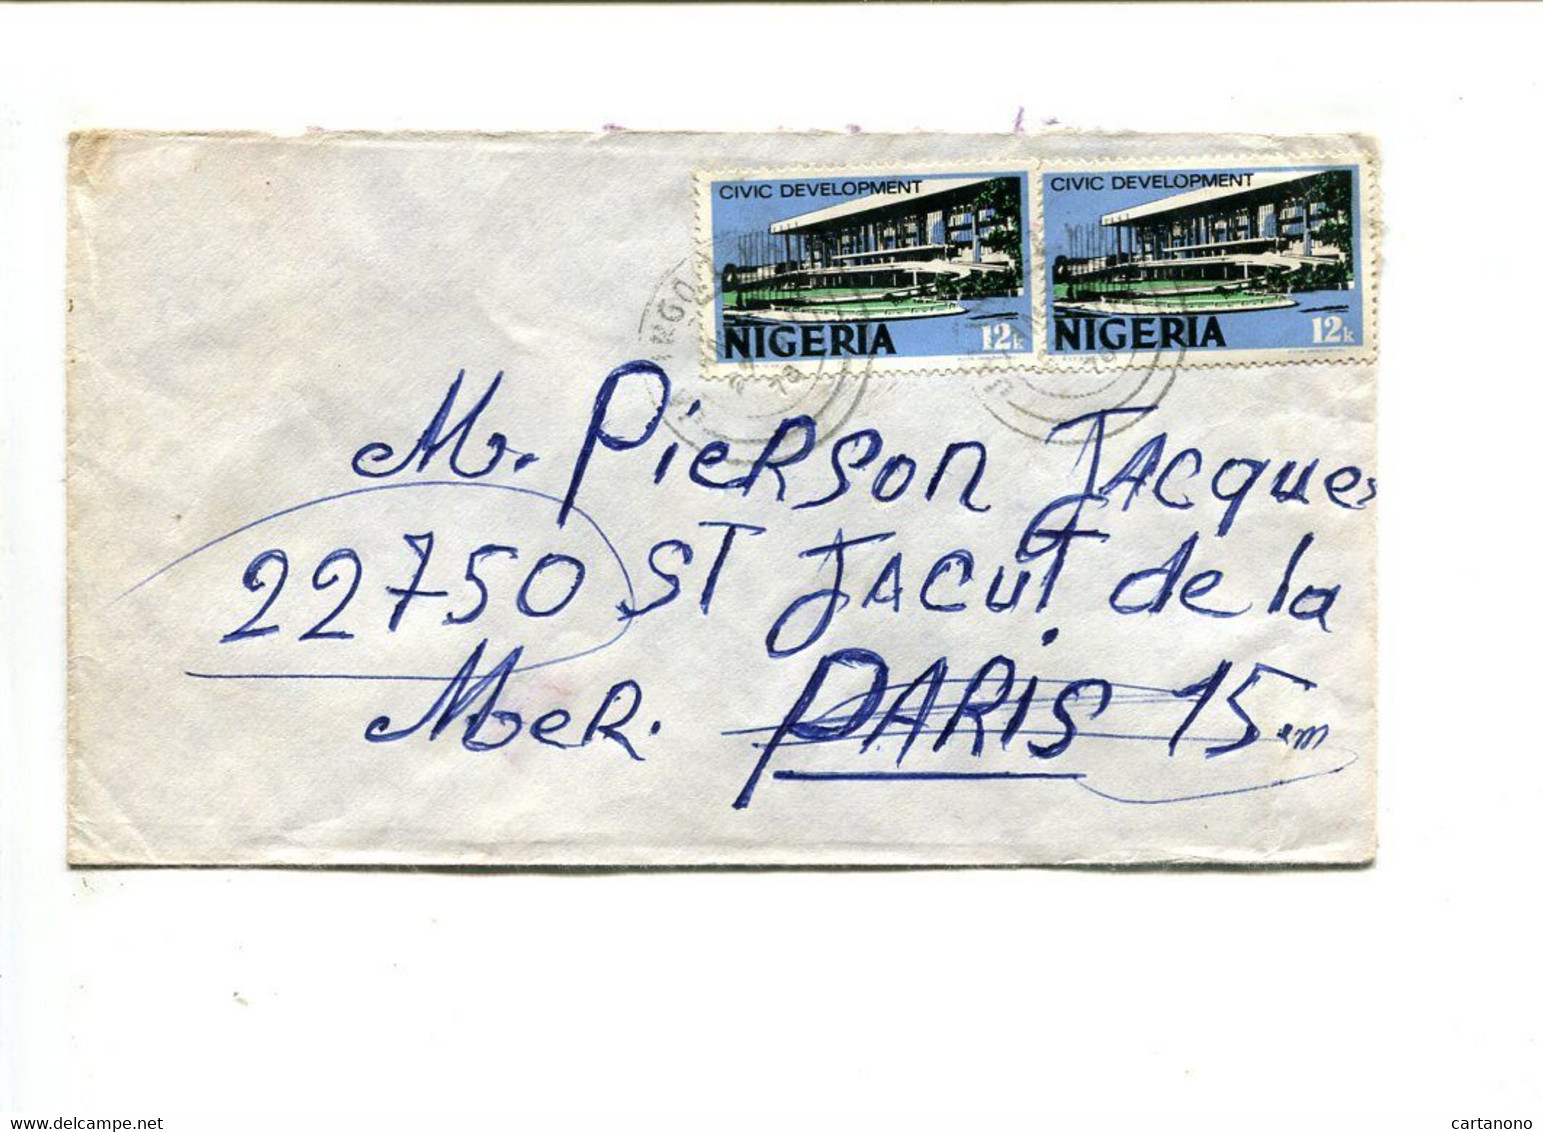 CIVIC DEVELOPMENT CIVIC DEVELOPMENT
NIGERIA 12k NIGERIA 12k
M. Pierson Jacques
22750 ST Jacut de la
Mer. PARIS 15 em
cartanono